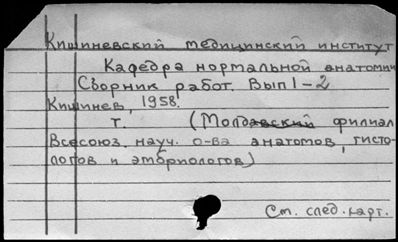 Кишиневский медицинский институт
Кафедра нормальной анатомии
Сборник работ. Вып 1-2
Кишинев, 1958.
т. (Молдавский филиал
Всесоюз. науч. о-ва анатомов, гисто-
логов и эмбриологов)
См. след. карт.